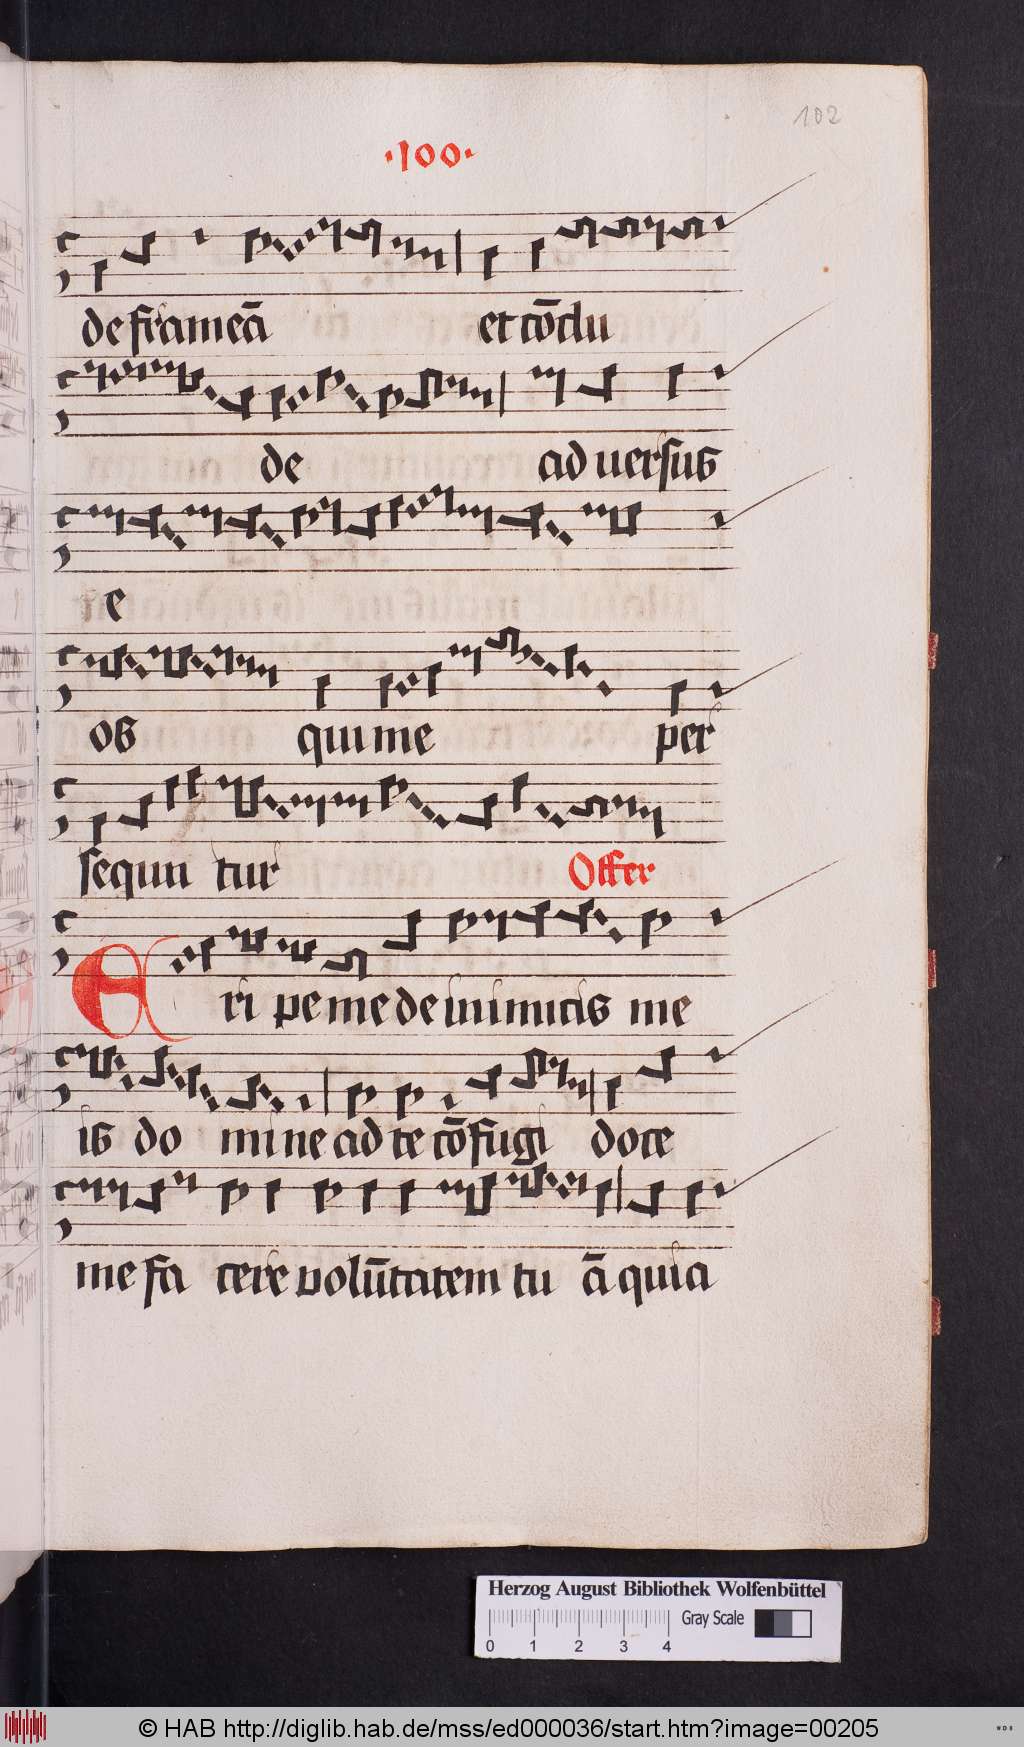 102
·100·
de frameā et cōclu
de ad uersus
e
os qui me per
sequn tur Offer
Eri pe me de inimicis me
is do mi ne ad te cōfugi doce
me fa cere volūtatem tu ā quia
Herzog August Bibliothek Wolfenbüttel
Gray Scale
0 1 2 3 4
© HAB http://diglib.hab.de/mss/ed000036/start.htm?image=00205